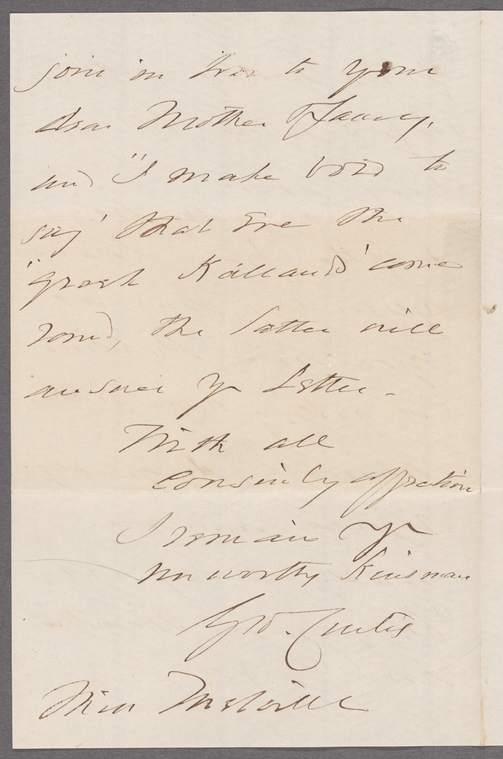 join in love to your
dear Mother & Fanny,
and "I make bold to
say" that ere the
"Greek Kalends" come
round, the latter will
answer yr letter.
With all
Cousinly affection
I remain yr
unworthy Kinsman
Geo. Curtis
Miss Melville